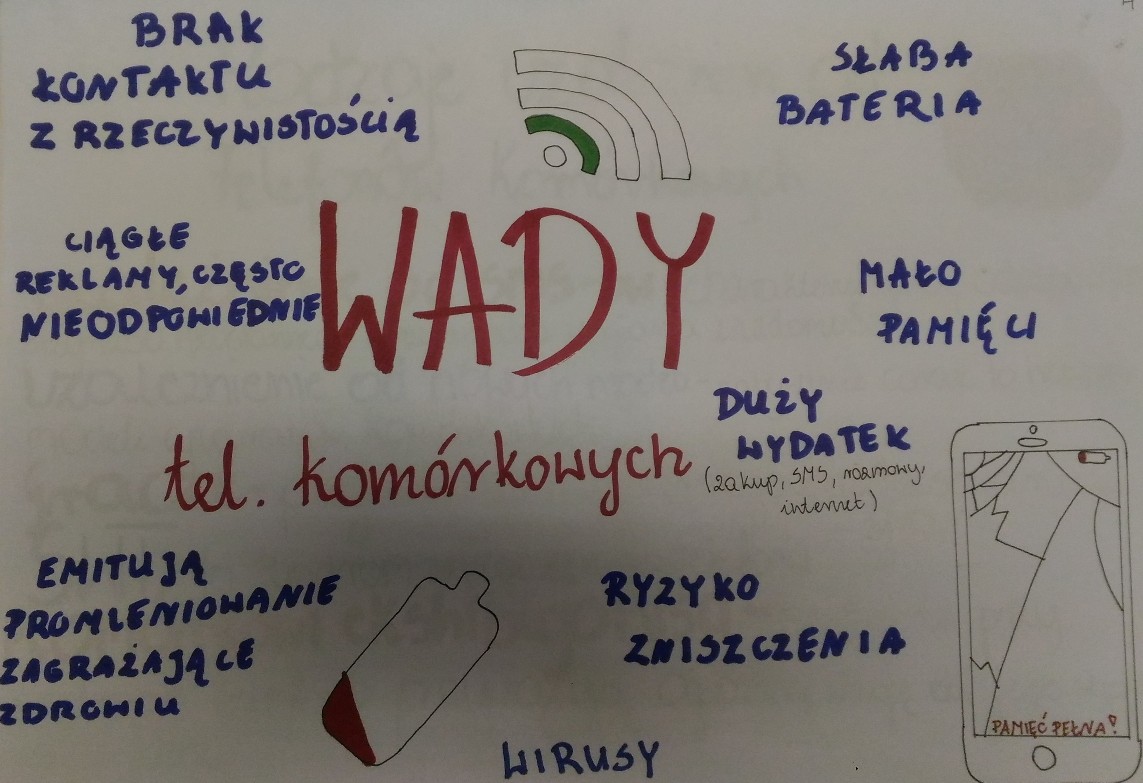 BRAK
KONTAKTU
Z RZECZYWISTOŚCIĄ
SŁABA
BATERIA
CIĄGŁE
REKLAMY, CZĘSTO
NIEODPOWIEDNIE
WADY
tel. komórkowych
MAŁO
PAMIĘCI
DUŻY
WYDATEK
(zakup, SMS, rozmowy,
internet)
EMITUJĄ
PROMIENIOWANIE
ZAGRAŻAJĄCE
ZDROWIU
RYZYKO
ZNISZCZENIA
WIRUSY
PAMIĘĆ PEŁNA!